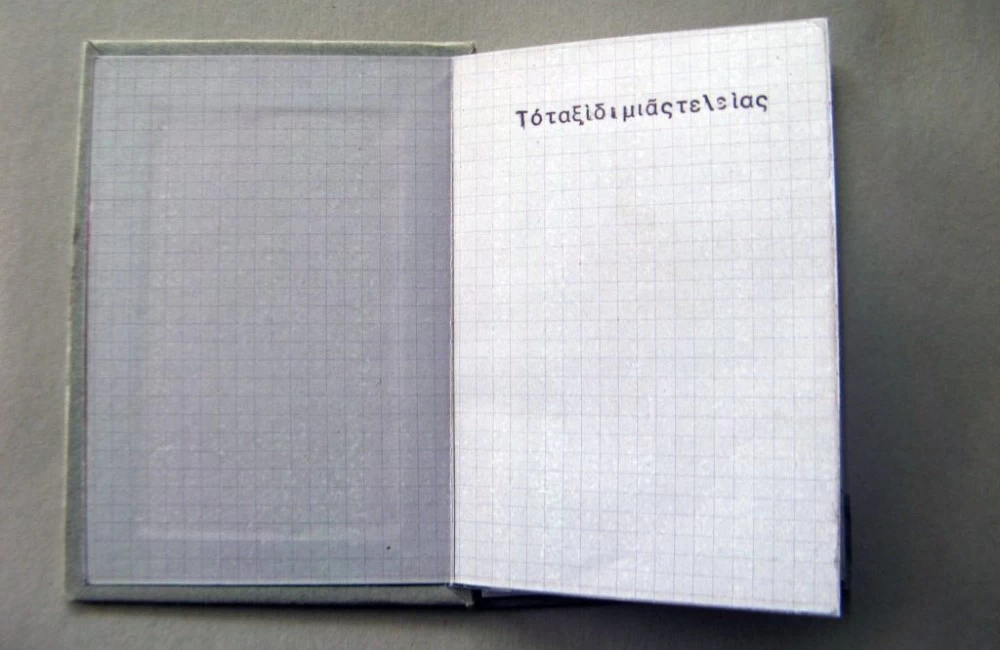 Τόταξὶδι μιᾶςτελεὶας